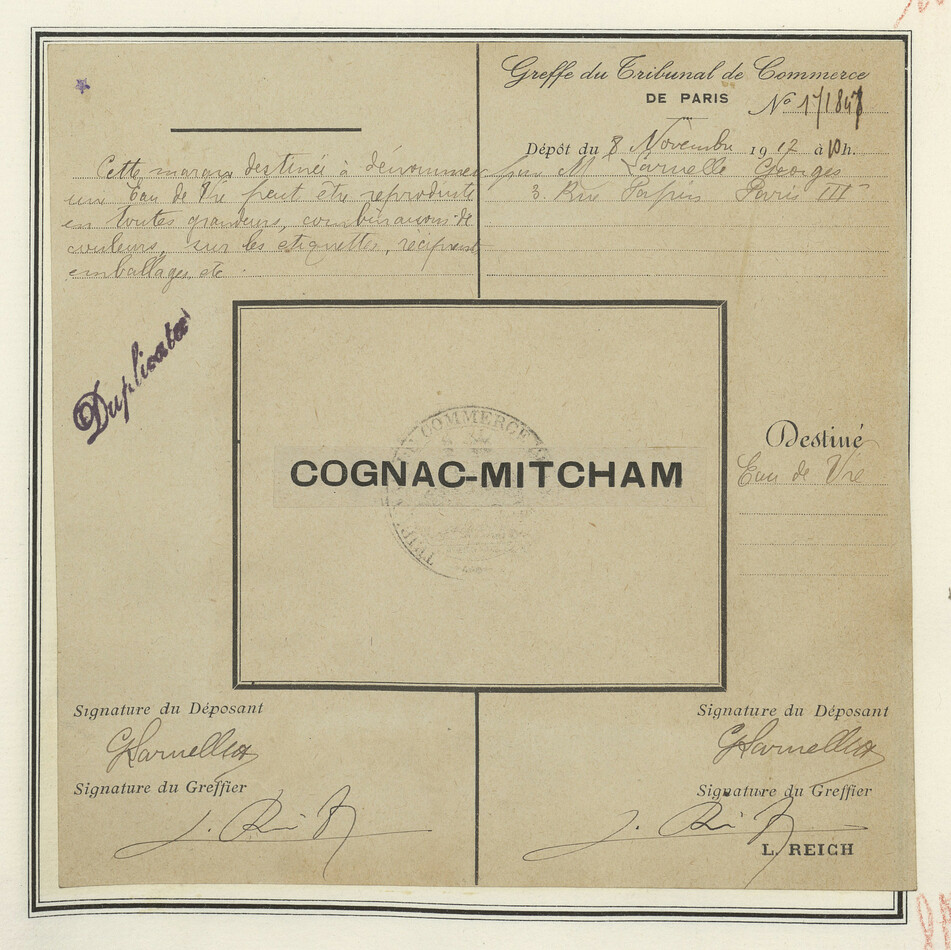 Greffe du Tribunal de Commerce
DE PARIS
N° 171848
Dépôt du 8 Novembre 1917 à 10 h.
par M Larnelle Georges
3 Rue Papin Paris III
Cette marque destinée à dénommer
une Eau de Vie peut être reproduite
en toutes grandeurs, combinaisons de
couleurs, sur les etiquettes, récipients
emballages, etc
Duplicata
COMMERCE
COGNAC-MITCHAM
Destiné
Eau de Vie
Signature du Déposant
GLarnelle
Signature du Greffier
Signature du Déposant
GLarnelle
Signature du Greffier
L. REICH